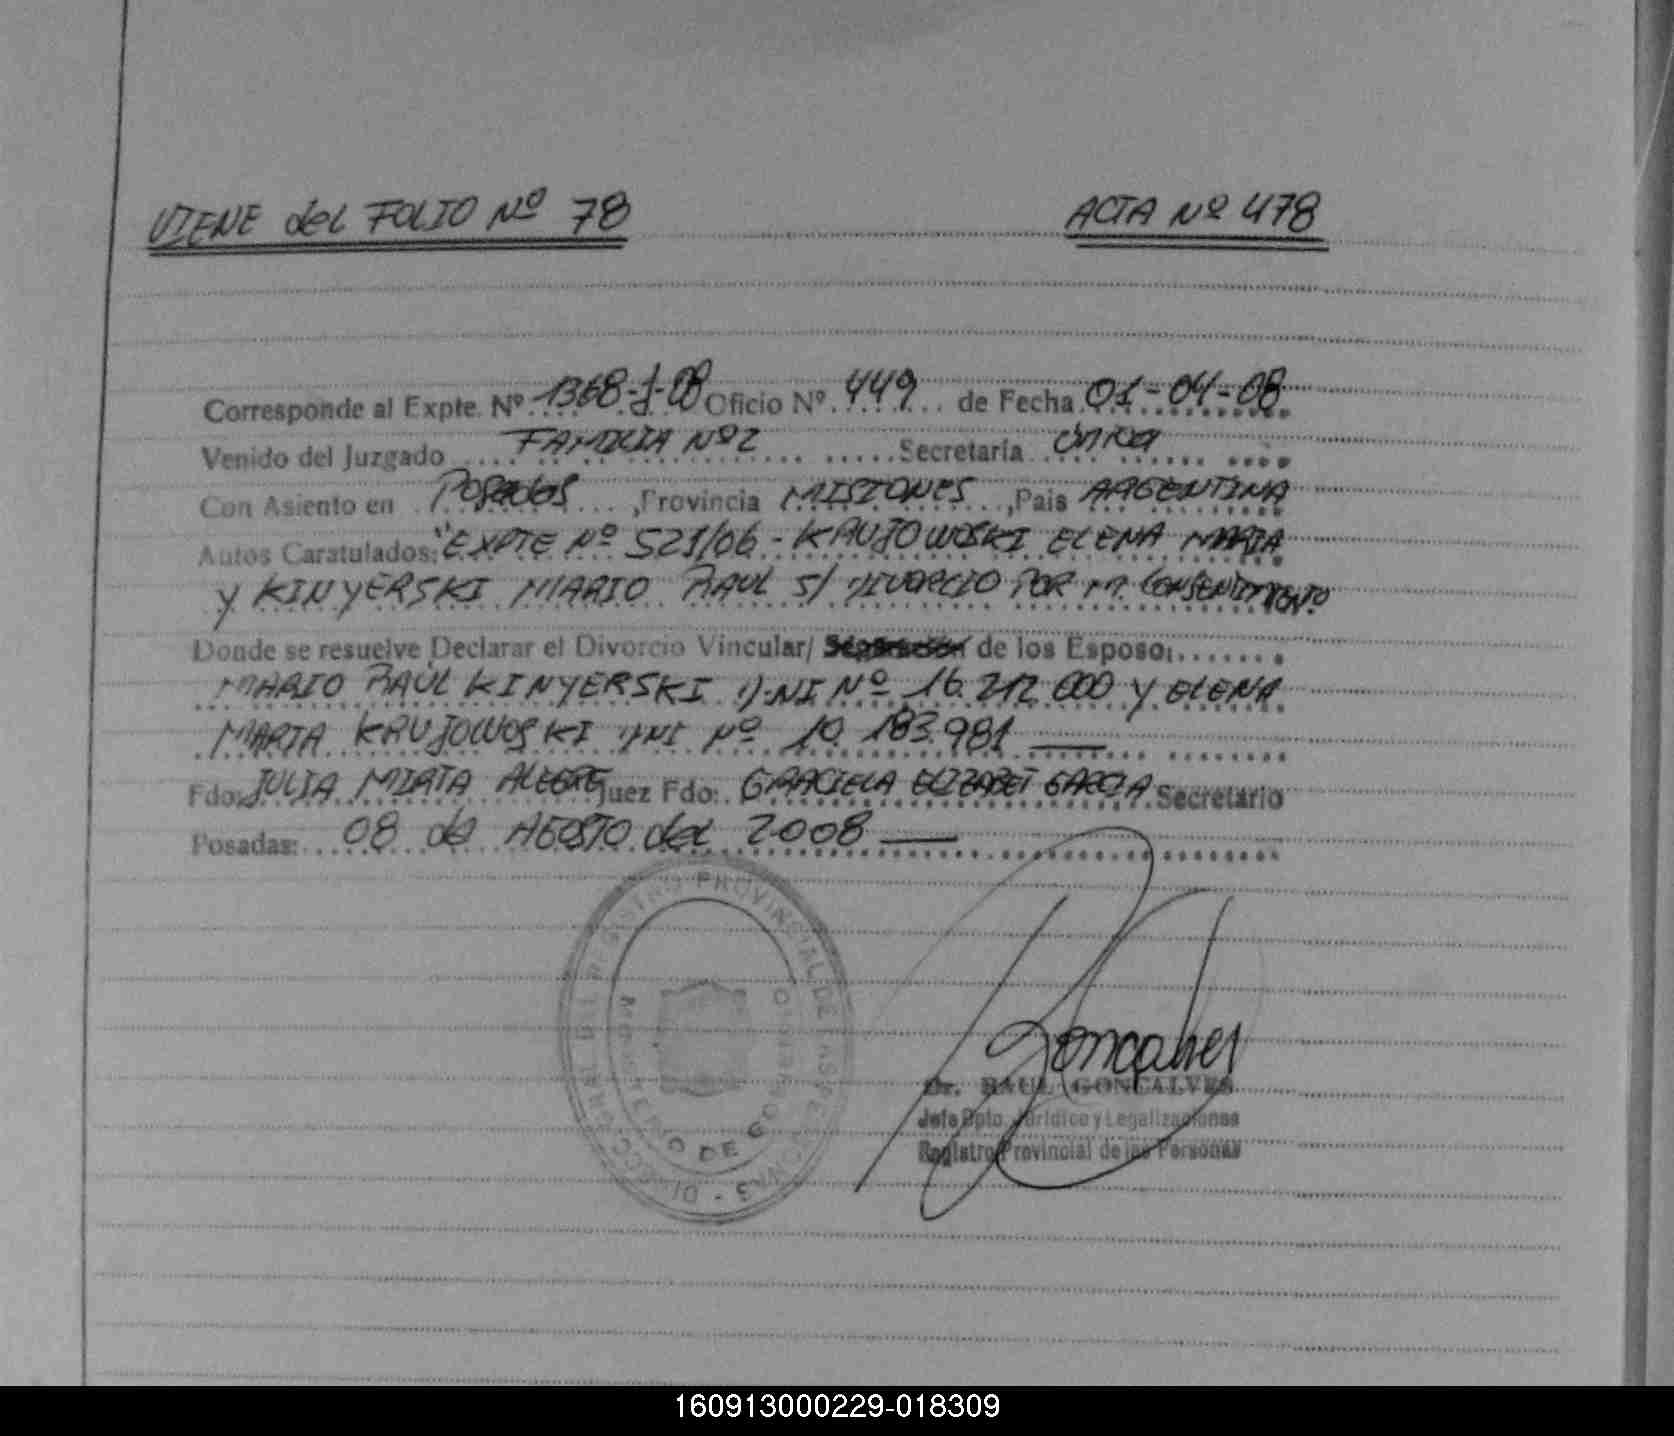 VIENE del FOLIO Nº 78 ACTA Nº 478
Corresponde al Expte. Nº 1368-J-08 Oficio Nº 449 de Fecha 01-04-08
Venido del Juzgado FAMILIA Nº 2 Secretaria única
Con Asiento en Posadas, Provincia MISIONES, Pais ARGENTINA
Autos Caratulados: "EXPTE Nº 521/06 - KRUJOWOSKI ELENA MARTA
y KINYERSKI MARIO RAUL S/ DIVORCIO POR M. CONSENTIMIENTO
Donde se resuelve Declarar el Divorcio Vincular/ de los Esposo:
MARIO RAÚL KINYERSKI D.NI Nº 16.212.000 y ELENA
MARTA KRUJOWOSKI DNI Nº 10.183.981
Fdo: JULIA MIRTA ALEGRE Juez Fdo: GRACIELA ELIZABET GARCIA Secretario
Posadas: 08 de AGOSTO del 2008
DIRECC. GRAL. DEL REGISTRO PROVINCIAL DE LAS PERSONAS
MINISTERIO DE GOBIERNO
Goncalves
Dr. RAUL GONCALVES
Jefe Dpto. Jurídico y Legalizaciones
Registro Provincial de las Personas
160913000229-018309